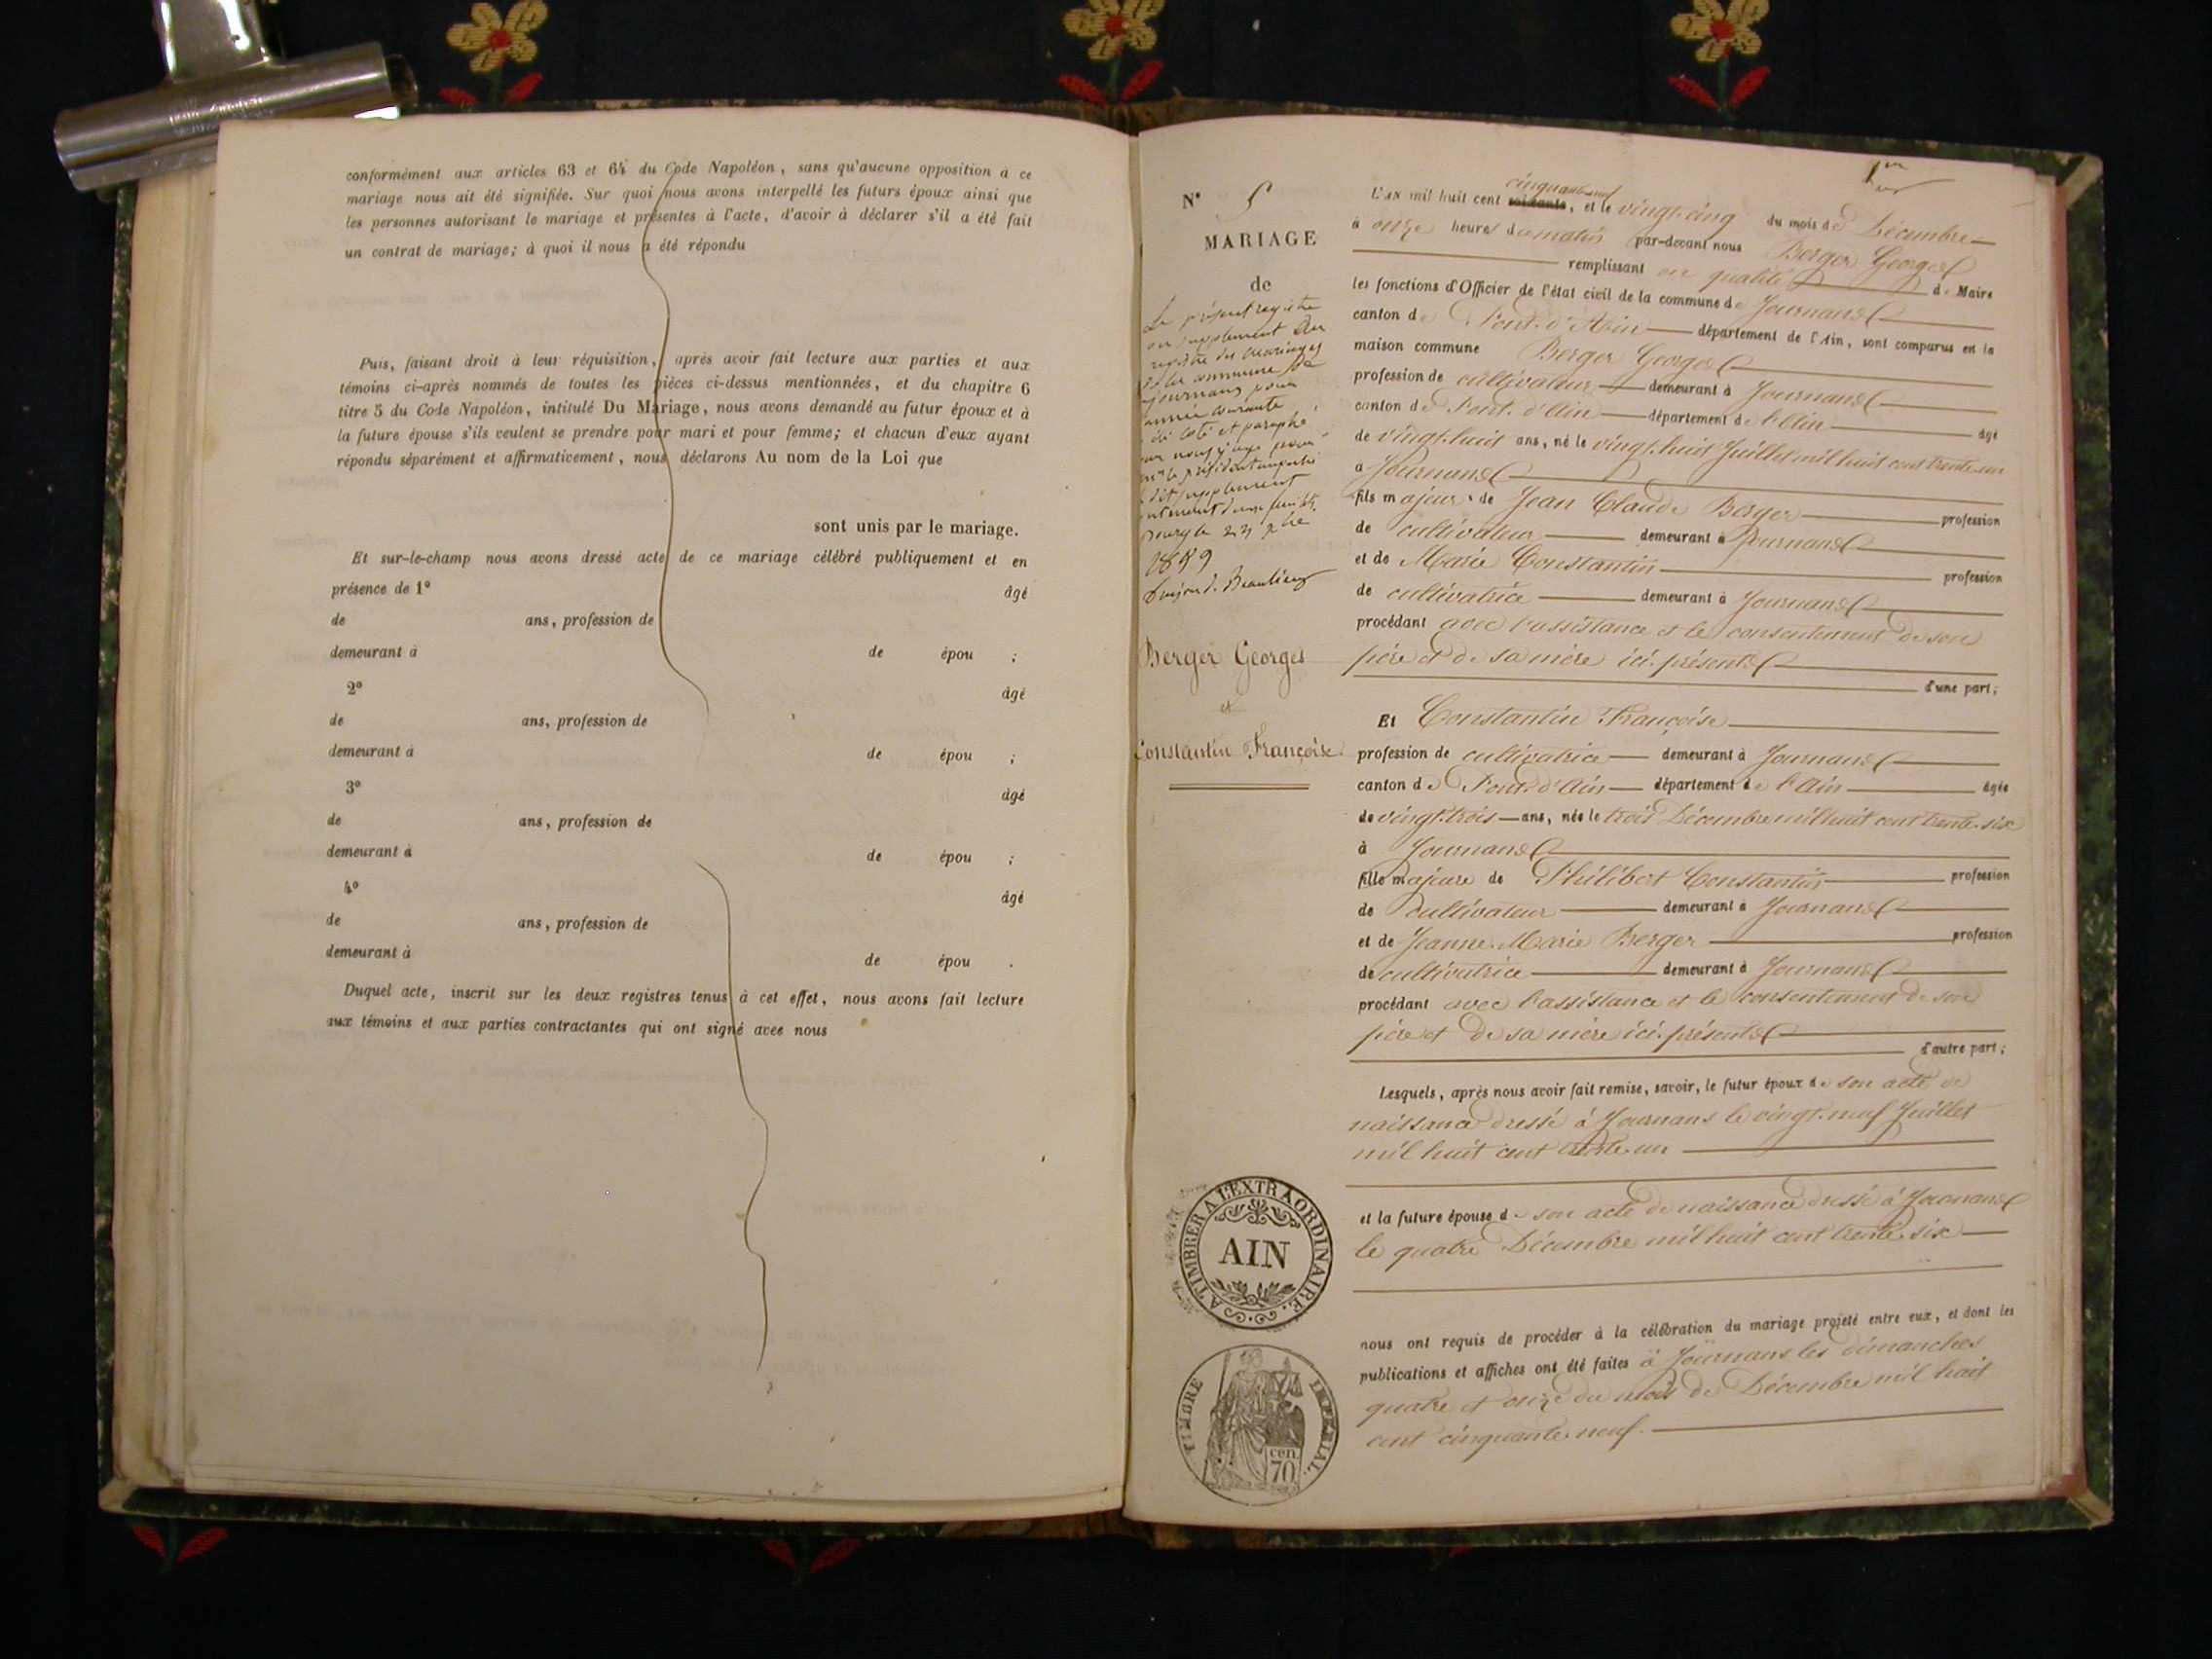 conformément aux articles 63 et 64 du Code Napoléon, sans qu'aucune opposition à ce
mariage nous ait été signifiée. Sur quoi nous avons interpellé les futurs époux ainsi que
les personnes autorisant le mariage et présentes à l'acte, d'avoir à déclarer s'il a été fait
un contrat de mariage; à quoi il nous a été répondu
Puis, faisant droit à leur réquisition, après avoir fait lecture aux parties et aux
témoins ci-après nommés de toutes les pièces ci-dessus mentionnées, et du chapitre 6
titre 5 du Code Napoléon, intitulé Du Mariage, nous avons demandé au futur époux et à
la future épouse s'ils veulent se prendre pour mari et pour femme; et chacun d'eux ayant
répondu séparément et affirmativement, nous déclarons Au nom de la Loi que
sont unis par le mariage.
Et sur-le-champ nous avons dressé acte de ce mariage célébré publiquement et en
présence de 1° âgé
de ans, profession de
demeurant à de épou ;
2° âgé
de ans, profession de
demeurant à de épou ;
3° âgé
de ans, profession de
demeurant à de épou ;
4° âgé
de ans, profession de
demeurant à de épou .
Duquel acte, inscrit sur les deux registres tenus à cet effet, nous avons fait lecture
aux témoins et aux parties contractantes qui ont signé avec nous
N° 5
MARIAGE
de
Le présent registre
en supplément du
registre des mariages
de la commune de
Journans pour
année courante
été coté et paraphé
1859
Berger Georges
et
Constantin Françoise
A TIMBRER A L'EXTRAORDINAIRE.
AIN
TIMBRE IMPERIAL.
cen
70
1er
cinquante neuf
L'AN mil huit cent soixante, et le vingt-cinq du mois de Décembre
à onze heures du matin par-devant nous Berger Georges
remplissant en qualité de Maire
les fonctions d'Officier de l'état civil de la commune de Journans
canton de Pont-d'Ain département de l'Ain, sont comparus en la
maison commune Berger Georges
profession de cultivateur demeurant à Journans
canton de Pont-d'Ain département de l'Ain âgé
de vingt-huit ans, né le vingt-huit Juillet mil huit cent trente-un
à Journans
fils majeur de Jean Claude Berger profession
de cultivateur demeurant à Journans
et de Marie Constantin profession
de cultivatrice demeurant à Journans
procédant avec l'assistance et le consentement de son
père et de sa mère ici présents
d'une part;
Et Constantin Françoise
profession de cultivatrice demeurant à Journans
canton de Pont-d'Ain département de l'Ain âgée
de vingt-trois ans, née le trois Décembre mil huit cent trente-six
à Journans
fille majeure de Philibert Constantin profession
de cultivateur demeurant à Journans
et de Jeanne-Marie Berger profession
de cultivatrice demeurant à Journans
procédant avec l'assistance et le consentement de son
père et de sa mère ici présents
d'autre part;
Lesquels, après nous avoir fait remise, savoir, le futur époux de son acte de
naissance dressé à Journans le vingt-neuf Juillet
mil huit cent trente-un
et la future épouse de son acte de naissance dressé à Journans
le quatre Décembre mil huit cent trente-six
nous ont requis de procéder à la célébration du mariage projeté entre eux, et dont les
publications et affiches ont été faites à Journans les dimanches
quatre et onze du mois de Décembre mil huit
cent cinquante-neuf.